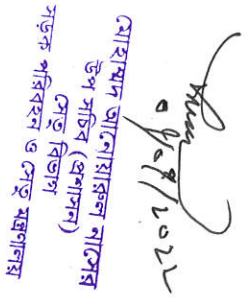 ০৮/০৯/২০২২
মোহাম্মদ আনোয়ারুল নাসের
উপ সচিব (প্রশাসন)
সেতু বিভাগ
সড়ক পরিবহন ও সেতু মন্ত্রণালয়